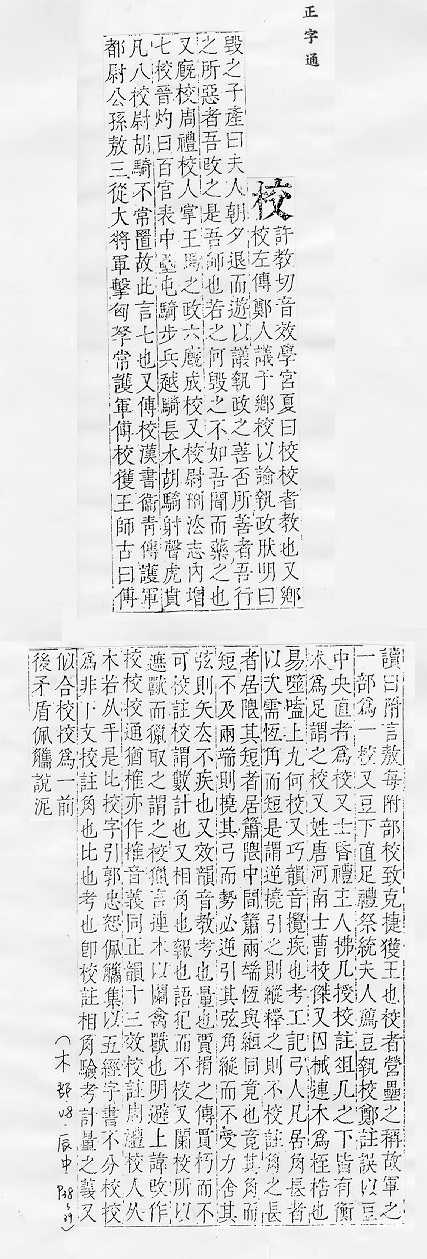 正字通
校
許教切音效學宮夏曰校校者教也又鄉
校左傳鄭人議于鄉校以論執政肰明曰
毀之子產曰夫人朝夕退而遊以議執政之善否所善者吾行
之所惡者吾改之是吾師也若之何毀之不如吾聞而藥之也
又廐校周禮校人掌王馬之政六廐成校又校尉刑法志內增
七校晉灼曰百官表中壘屯騎步兵越騎長水胡騎射聲虎賁
凡八校尉胡騎不常置故此言七也又傅校漢書衞青傳護軍
都尉公孫敖三從大將軍擊匈孥常護軍傅校獲王師古曰傅
讀曰附言敖每附部校致克捷獲王也校者營壘之稱故軍之
一部為一校又豆下直足禮祭統夫人薦豆執校鄭註誤以豆
中央直者為校又士昏禮主人拂几授校註俎几之下皆有衡
木為足謂之校又姓唐河南士曹校傑又囚械連木為桎梏也
易噬嗑上九何校又巧韻音攪疾也考工記弓人凡居角長者
以次需恆角而短是謂逆橈引之則縱釋之則不校註角之長
者居隈其短者居簫隈中間簫兩端恆與緪同竟也竟其角而
短不及兩端則撓其弓而勢必逆引其弦角縱而不受力舍其
弦則矢去不疾也又效韻音教考也量也賈捐之傳貫朽而不
可校註校謂數計也又相角也報也語犯而不校又闌校所以
遮獸而獵取之謂之校獵言連木以闌禽獸也明避上諱改作
挍校校通猶榷亦作搉音義同正韻十三效校註周禮校人从
木若从手是比挍字引郭忠恕佩觿集以五經字書不分挍校
為非下文挍註角也比也考也卽校註相角驗考計量之義又
似合挍校為一前
後矛盾佩觿說泥
(木部 辰中